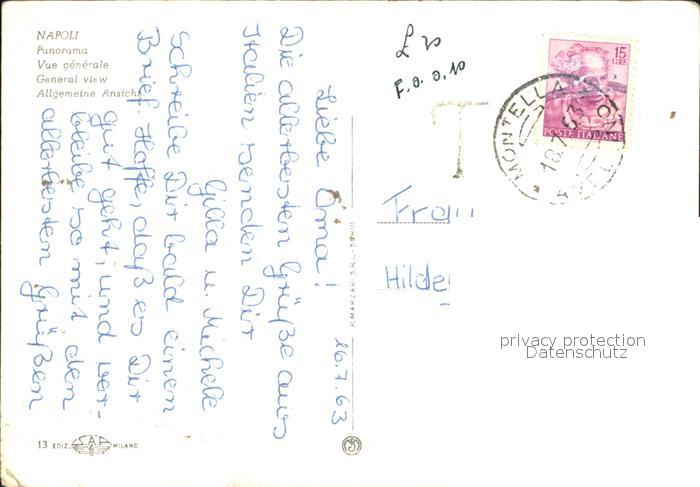 NAPOLI
Panorama
Vue générale
General view
Allgemeine Ansicht
16.7.63
Liebe Oma!
Die allerbesten Grüße aus
Italien senden Dir
Gilla u. Michele
Schreibe Dir bald einen
Brief. Hoffe, daß es Dir
gut geht, und ver-
bleibe so mit den
allerbesten Grüßen
13 EDIZ. SAP MILANO
£ 20
F. o. o, 10
T
15
LIRE
POSTE ITALIANE
MONTELLA
18.7.63
Frau
Hilde
privacy protection
Datenschutz